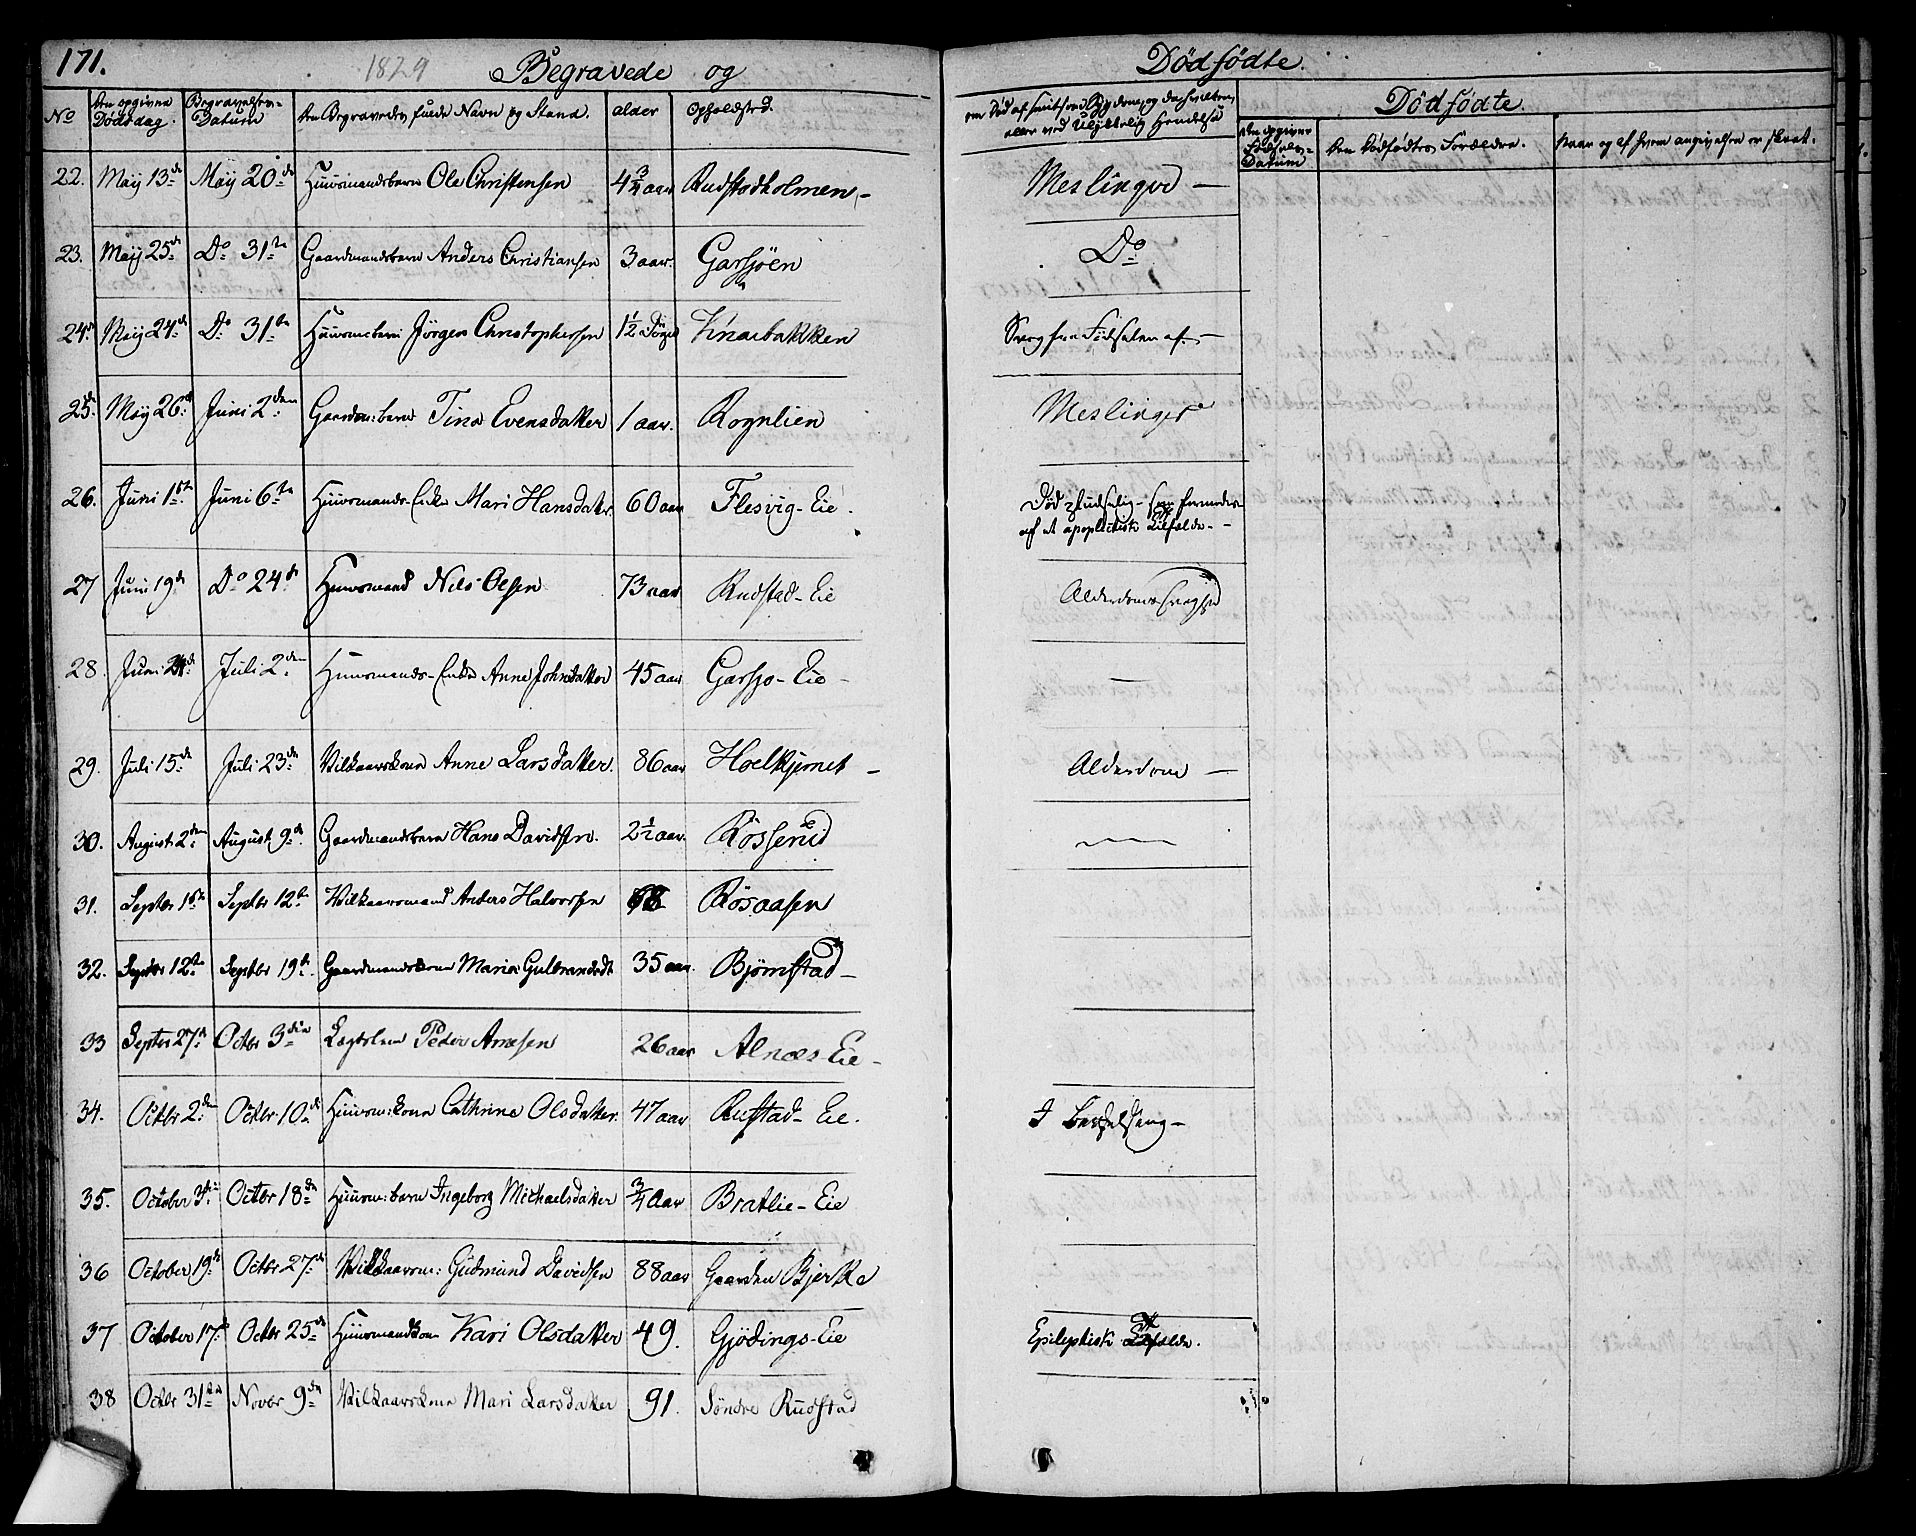 171. 1829 Begravede og Dødfødte.
No Den opgivne Dødsdag. Begravelses-Datum Den Begravedes fulde Navn og Stand. alder Opholdsted. Dødfødte.
Den opgivne Fødsels-Datum Den Dødfødtes Forældre. Naar og af hvem angivelsen er skeet.
22. Maÿ 13de Maÿ 20de Huusmandsbarn Ole Christensen 4 3/4 aar Rudstadholmen - Meslinger -
23. Maÿ 25de Do 31te Gaardmandsbarn Anders Christiansen 3 aar. Garsjöen Do
24de Maÿ 24de Do 31te Huusm:barn Jörgen Christophersen 1 1/2 Knaebakken Svag fra Födselen af. -
25de. Maÿ 26de Juni 2den Gaardm:barn Tina Evensdatter 1 aar. Rognlien Meslinger
26. Juni 1ste Juni 6te Huusmands-Enke Mari Hansdatter 60 aar Flesvig-Eie. Død pludselig - formodes af et apoplectisk Tilfælde -
27 Juni 19de Do 24de Huusmand Nils Olsen 73 aar Rudstad-Eie Alderdomssvaghed
28. Juni 24de Juli 2den Huusmands-Enke Anne Johnsdatter 45 aar Garsjo-Eie - —
29. Juli 15de Juli 23de Vilkaarskone Anne Larsdatter. 86 aar Hoelkjernet - Alderdom -
30. August 2den August 9de Gaardmandsbarn Hans Davidsen. 2 1/2 aar. Rösserud
31. Septbr Septbr 12te Vilkaarsmand Anders Halvorsen 68 Rösaasen
32. Septbr 12te Septbr 19de Gaardmandskone Maria Gulbrandsdt 35 aar. Bjørnstad -
33 Septbr 27de Octbr 3die Lægdslem Peder Arnesen 26 aar Alnæs-Eie -
34. Octbr 2den Octbr 10de Huusm:kone Cathrine Olsdatter. 47 aar Rustad-Eie. I Barselseng -
35. October 3die Octbr 18de Huusm:barn Ingeborg Michaelsdatter 3/4 Aar Bratlie-Eie
36 October 19de Octbr 27de Vilkaarsm: Gudmund Davidsen 88 aar Gaarden Bjerke
37 October 17de Octbr 25de Huusmandskone Kari Olsdatter 49. Gjödings-Eie Epileptisk Tilfælde.
38 Octbr 31te Novbr 9de Vilkaarskone Mari Larsdatter 91. Söndre Rudstad